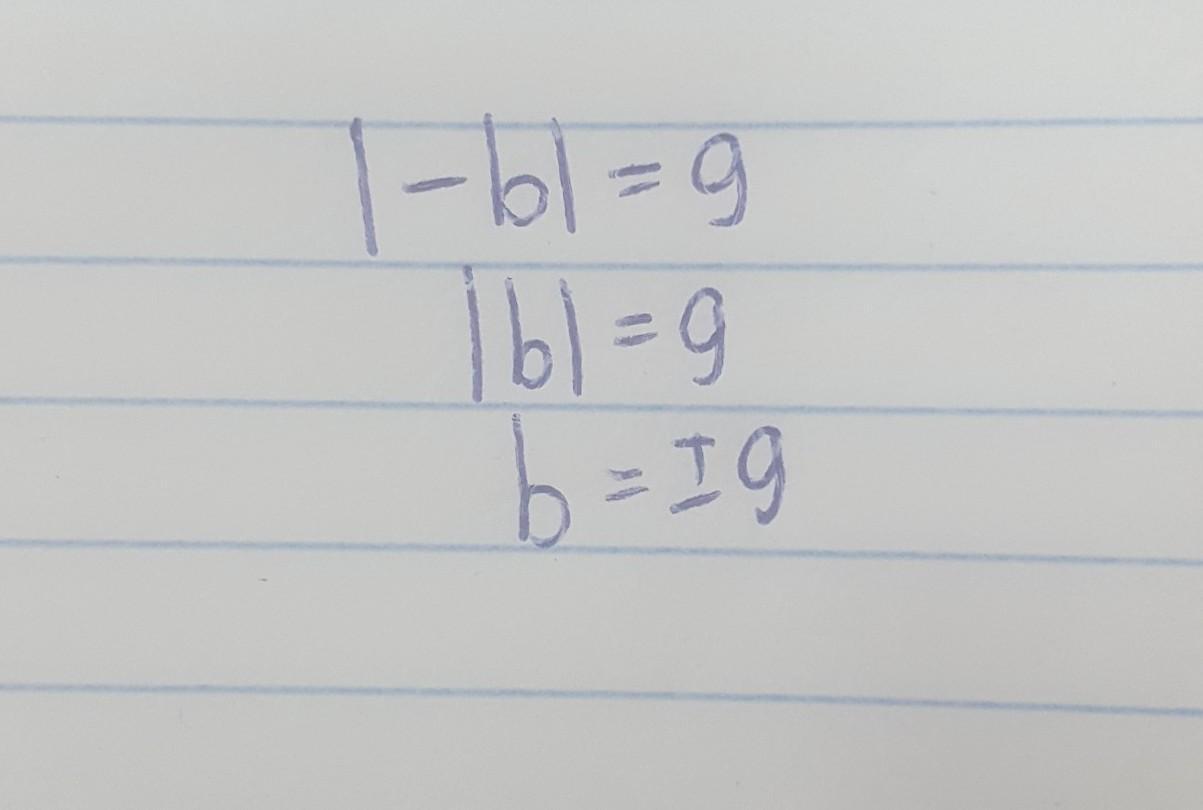 |-b| = 9
|b| = 9
b = ±9